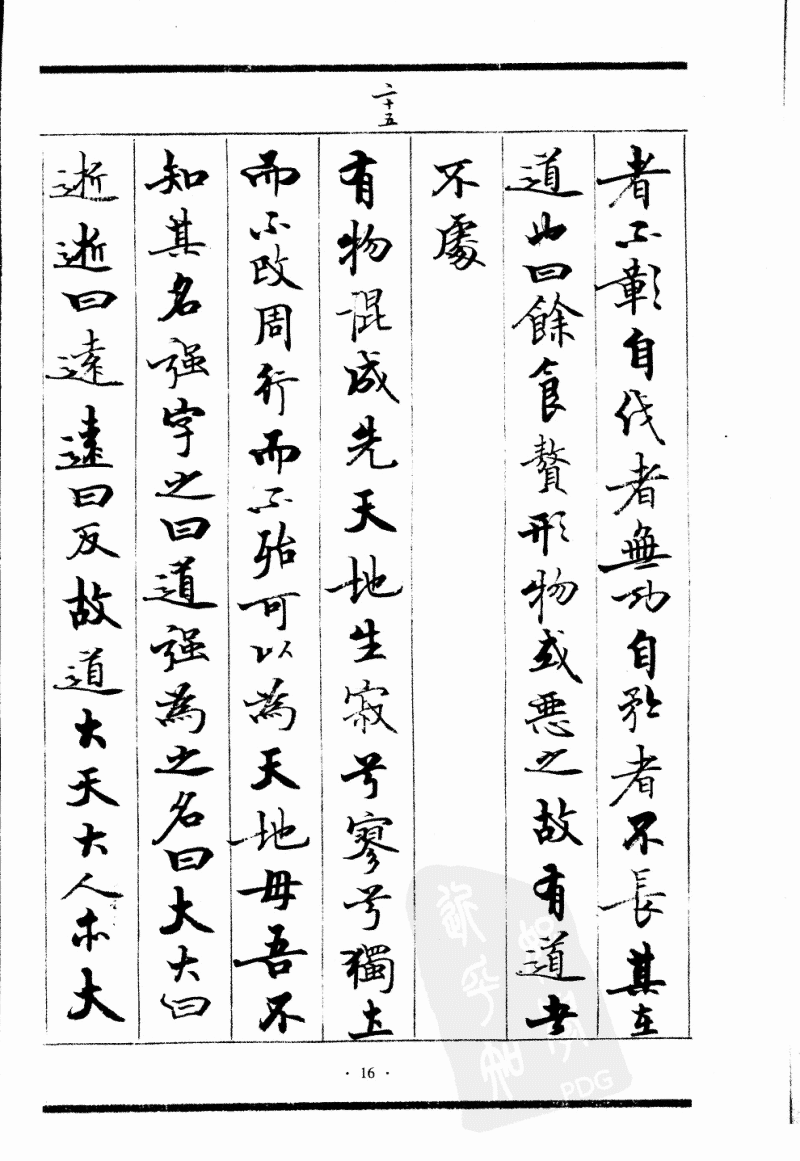 二十五
者不彰自伐者無功自矜者不長其在
道也曰餘食贅形物或惡之故有道者
不處
有物混成先天地生寂兮寥兮獨立
而不改周行而不殆可以為天地母吾不
知其名强字之曰道强為之名曰大大曰
逝逝曰遠遠曰反故道大天大人亦大
· 16 ·
PDG